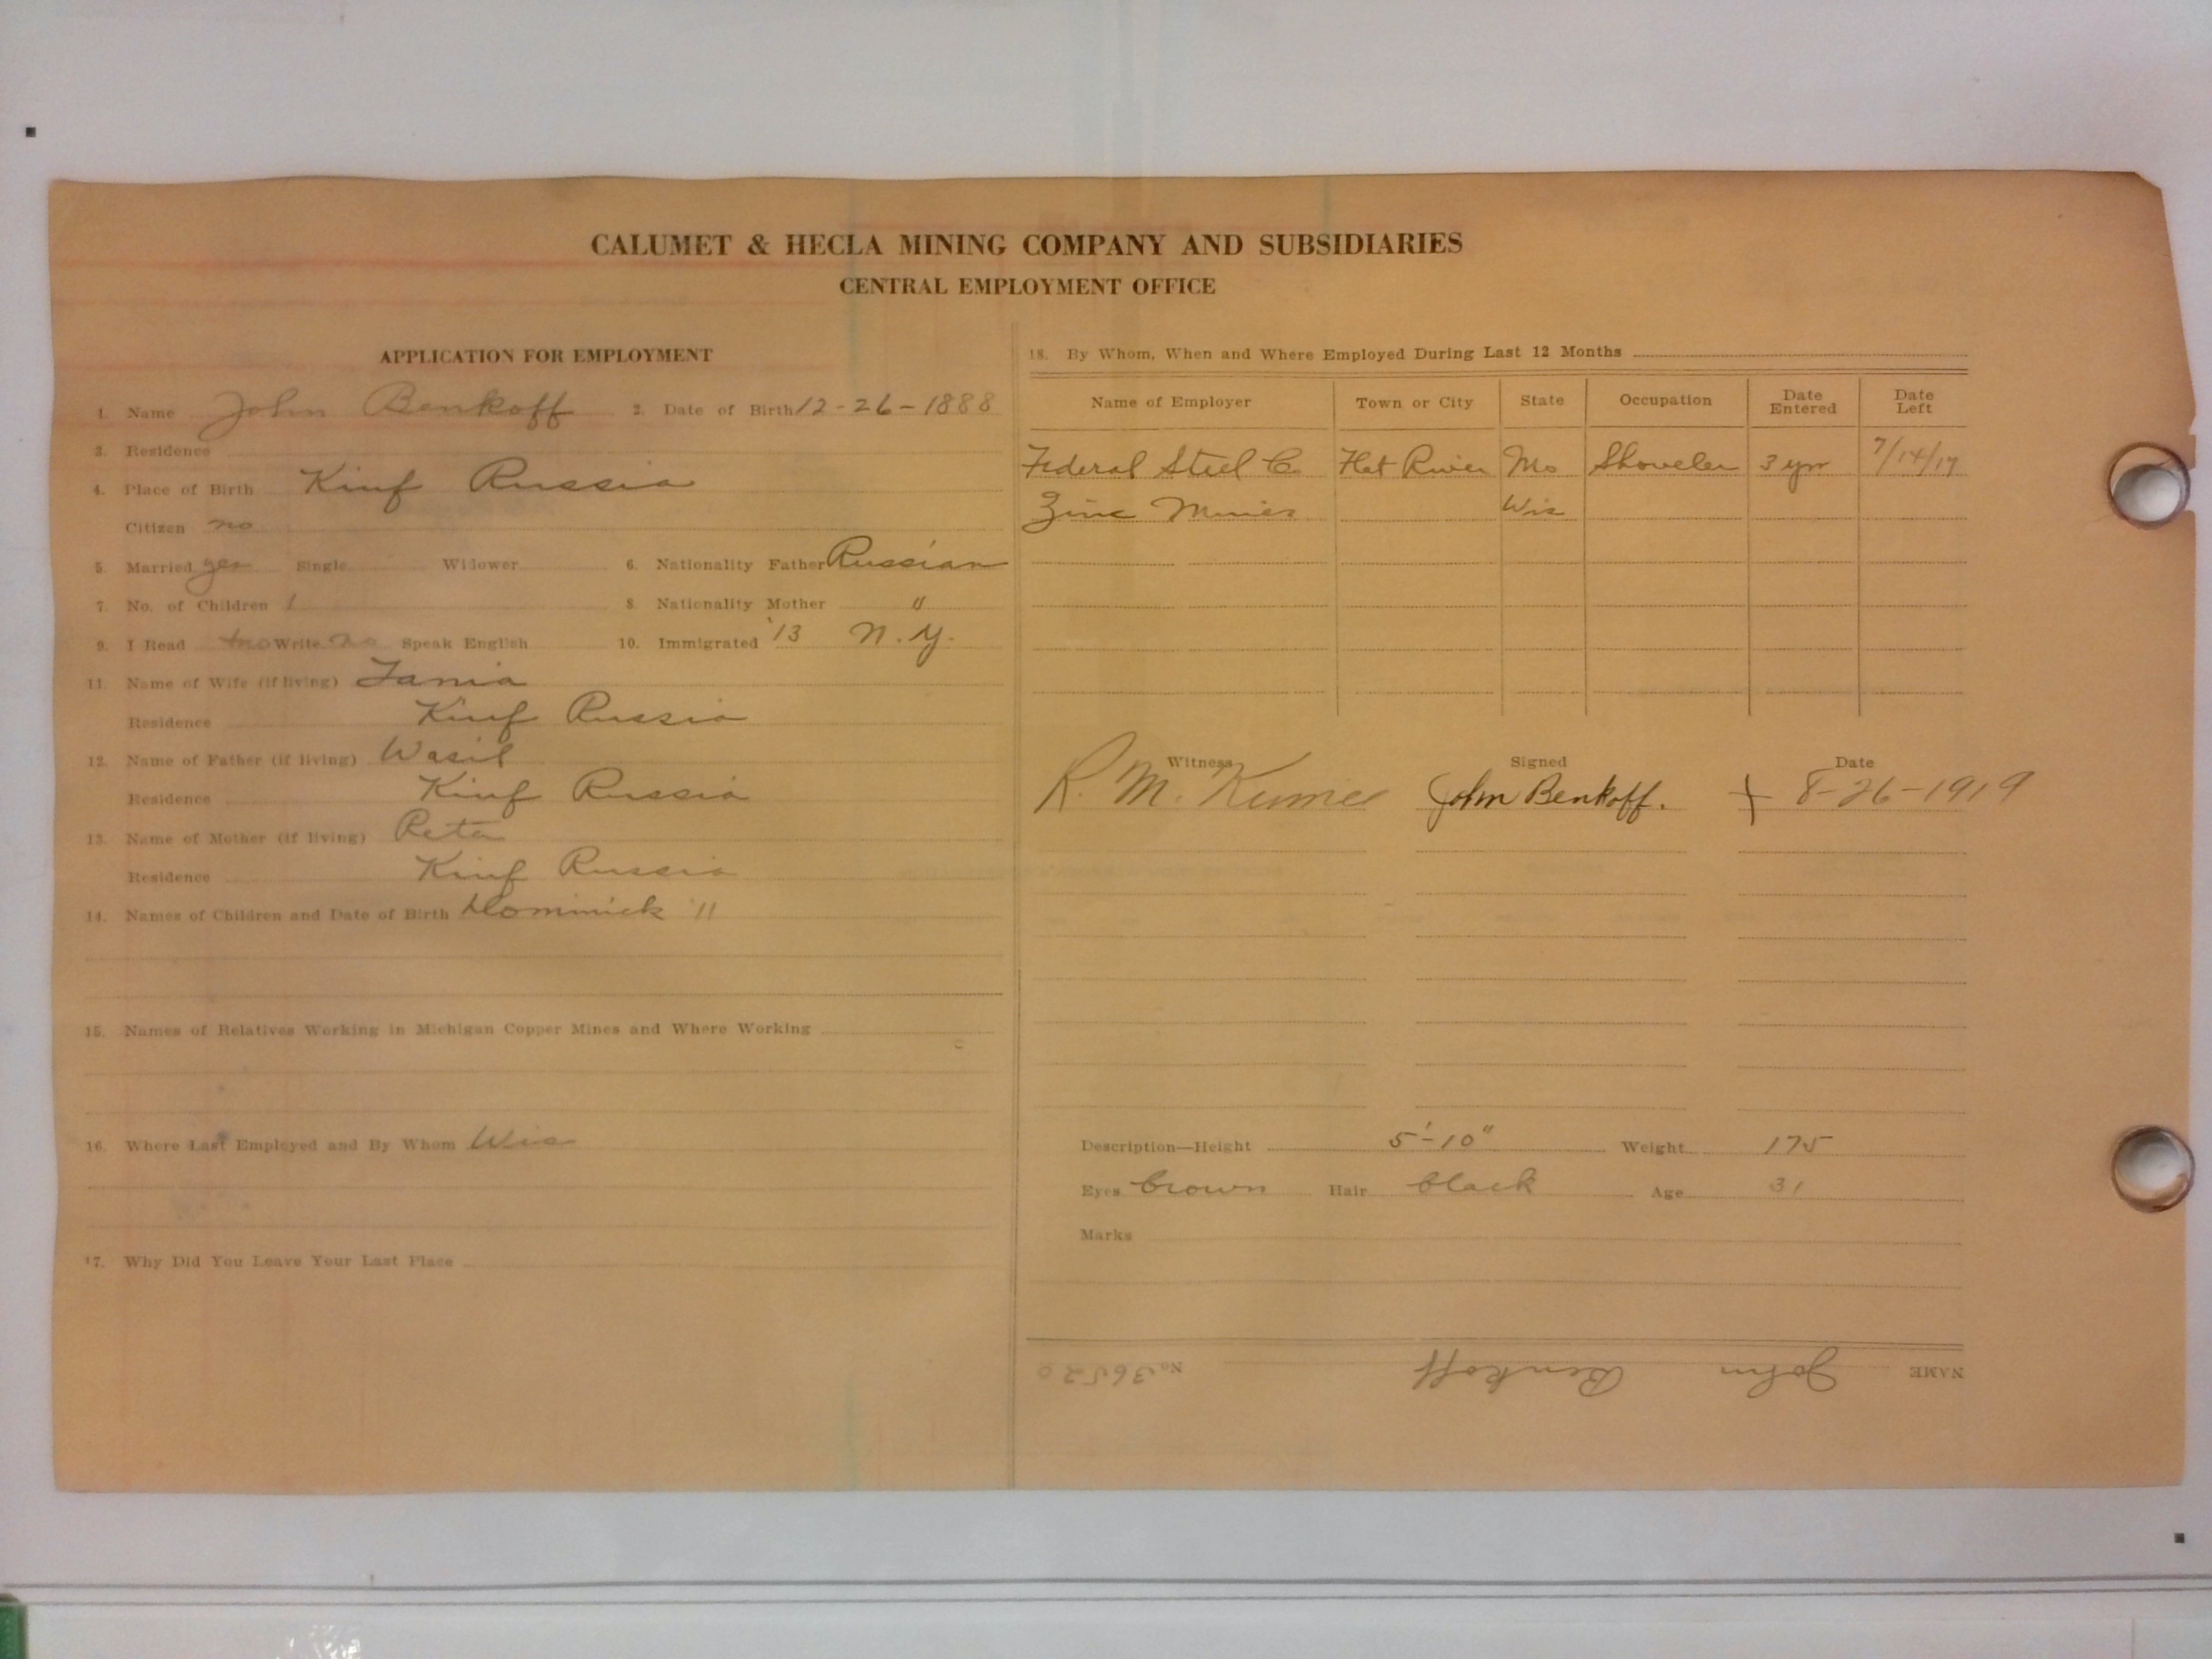 CALUMET & HECLA MINING COMPANY AND SUBSIDIARIES
CENTRAL EMPLOYMENT OFFICE
APPLICATION FOR EMPLOYMENT
1. Name John Benkoff 2. Date of Birth 12-26-1888
3. Residence
4. Place of Birth Kiuf Russia
Citizen no
5. Married yes Single Widower 6. Nationality Father Russian
7. No. of Children 1 8. Nationality Mother "
9. I Read no Write no Speak English 10. Immigrated '13 N.Y.
11. Name of Wife (if living) Tania
Residence Kiuf Russia
12. Name of Father (if living) Wasil
Residence Kiuf Russia
13. Name of Mother (if living) Reta
Residence Kiuf Russia
14. Names of Children and Date of Birth Dominick '11
15. Names of Relatives Working in Michigan Copper Mines and Where Working
16. Where Last Employed and By Whom Wis
17. Why Did You Leave Your Last Place
18. By Whom, When and Where Employed During Last 12 Months
Name of Employer Town or City State Occupation Date Entered Date Left
Federal Steel Co Flat River Mo Shoveler 3 yrs 7/14/19
Zinc Mines Wis
Witness Signed Date
R. M. John Benkoff. + 8-26-1919
Description—Height 5'-10" Weight 175
Eyes brown Hair black Age 31
Marks
NAME John Benkoff No. 36520